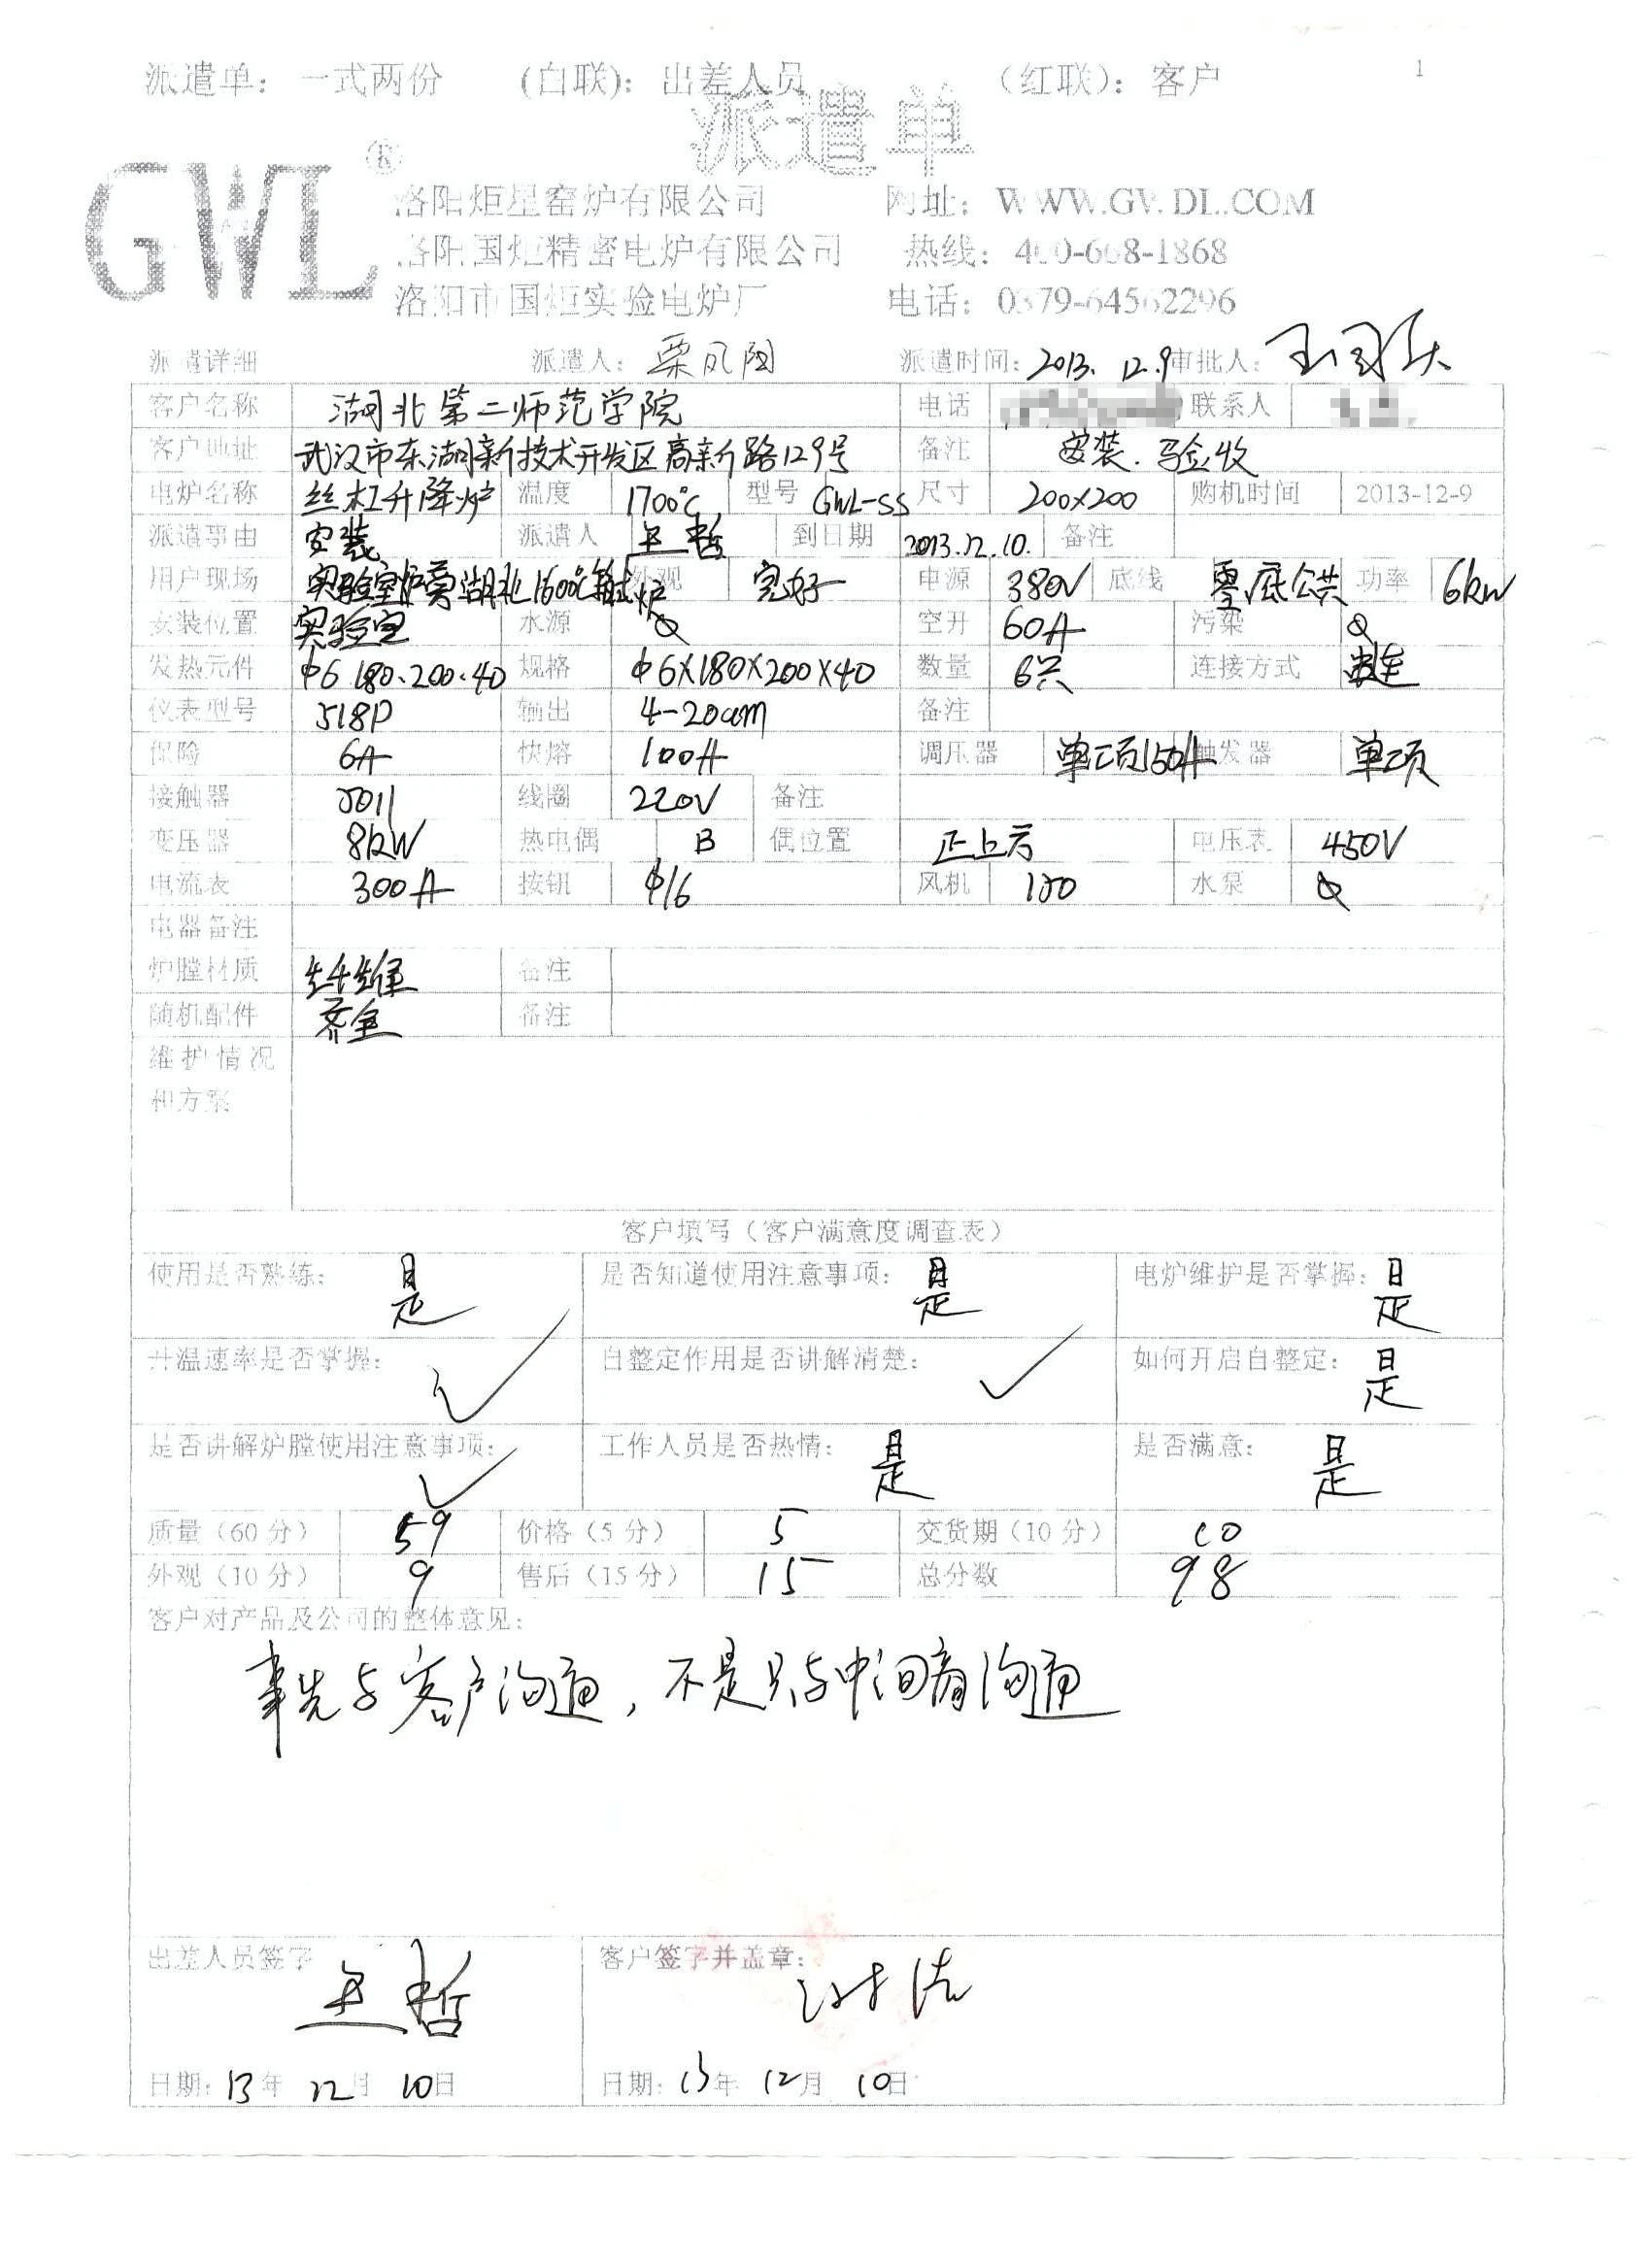 派遣单：一式两份 (白联)：出差人员 （红联）：客户 1
派遣单
GWL ®
洛阳炬星窑炉有限公司 网址：WWW.GWDL.COM
洛阳国炬精密电炉有限公司 热线：400-668-1868
洛阳市国炬实验电炉厂 电话：0379-64562296
派遣详细 派遣人：栗凤阁 派遣时间：2013.12.9 审批人：
客户名称 湖北第二师范学院 电话 联系人
客户地址 武汉市东湖新技术开发区高新路129号 备注 安装.验收
电炉名称 丝杠升降炉 温度 1700℃ 型号 GWL-SS 尺寸 200X200 购机时间 2013-12-9
派遣事由 安装 派遣人 王哲 到日期 2013.12.10. 备注
用户现场 实验室炉旁湖北1600℃箱式炉 外观 完好 电源 380V 底线 零底公共 功率 6kW
安装位置 实验室 水源 空开 60A 污染
发热元件 φ6.180.200.40 规格 φ6X180X200X40 数量 6只 连接方式 串连
仪表型号 518P 输出 4-20am 备注
保险 6A 快熔 100A 调压器 单项150A 触发器 单项
接触器 5011 线圈 220V 备注
变压器 8kW 热电偶 B 偶位置 正上方 电压表 450V
电流表 300A 按钮 φ16 风机 120 水泵
电器备注
炉膛材质 纤维 备注
随机配件 齐全 备注
维护情况
和方案
客户填写（客户满意度调查表）
使用是否熟练：是 是否知道使用注意事项：是 电炉维护是否掌握：是
升温速率是否掌握：✓ 自整定作用是否讲解清楚：✓ 如何开启自整定：是
是否讲解炉膛使用注意事项：✓ 工作人员是否热情：是 是否满意：是
质量（60分） 59 价格（5分） 5 交货期（10分） 10
外观（10分） 9 售后（15分） 15 总分数 98
客户对产品及公司的整体意见：
事先与客户沟通，不是只与中间商沟通
出差人员签字 王哲 客户签字并盖章：
日期：13年12月10日 日期：13年12月10日